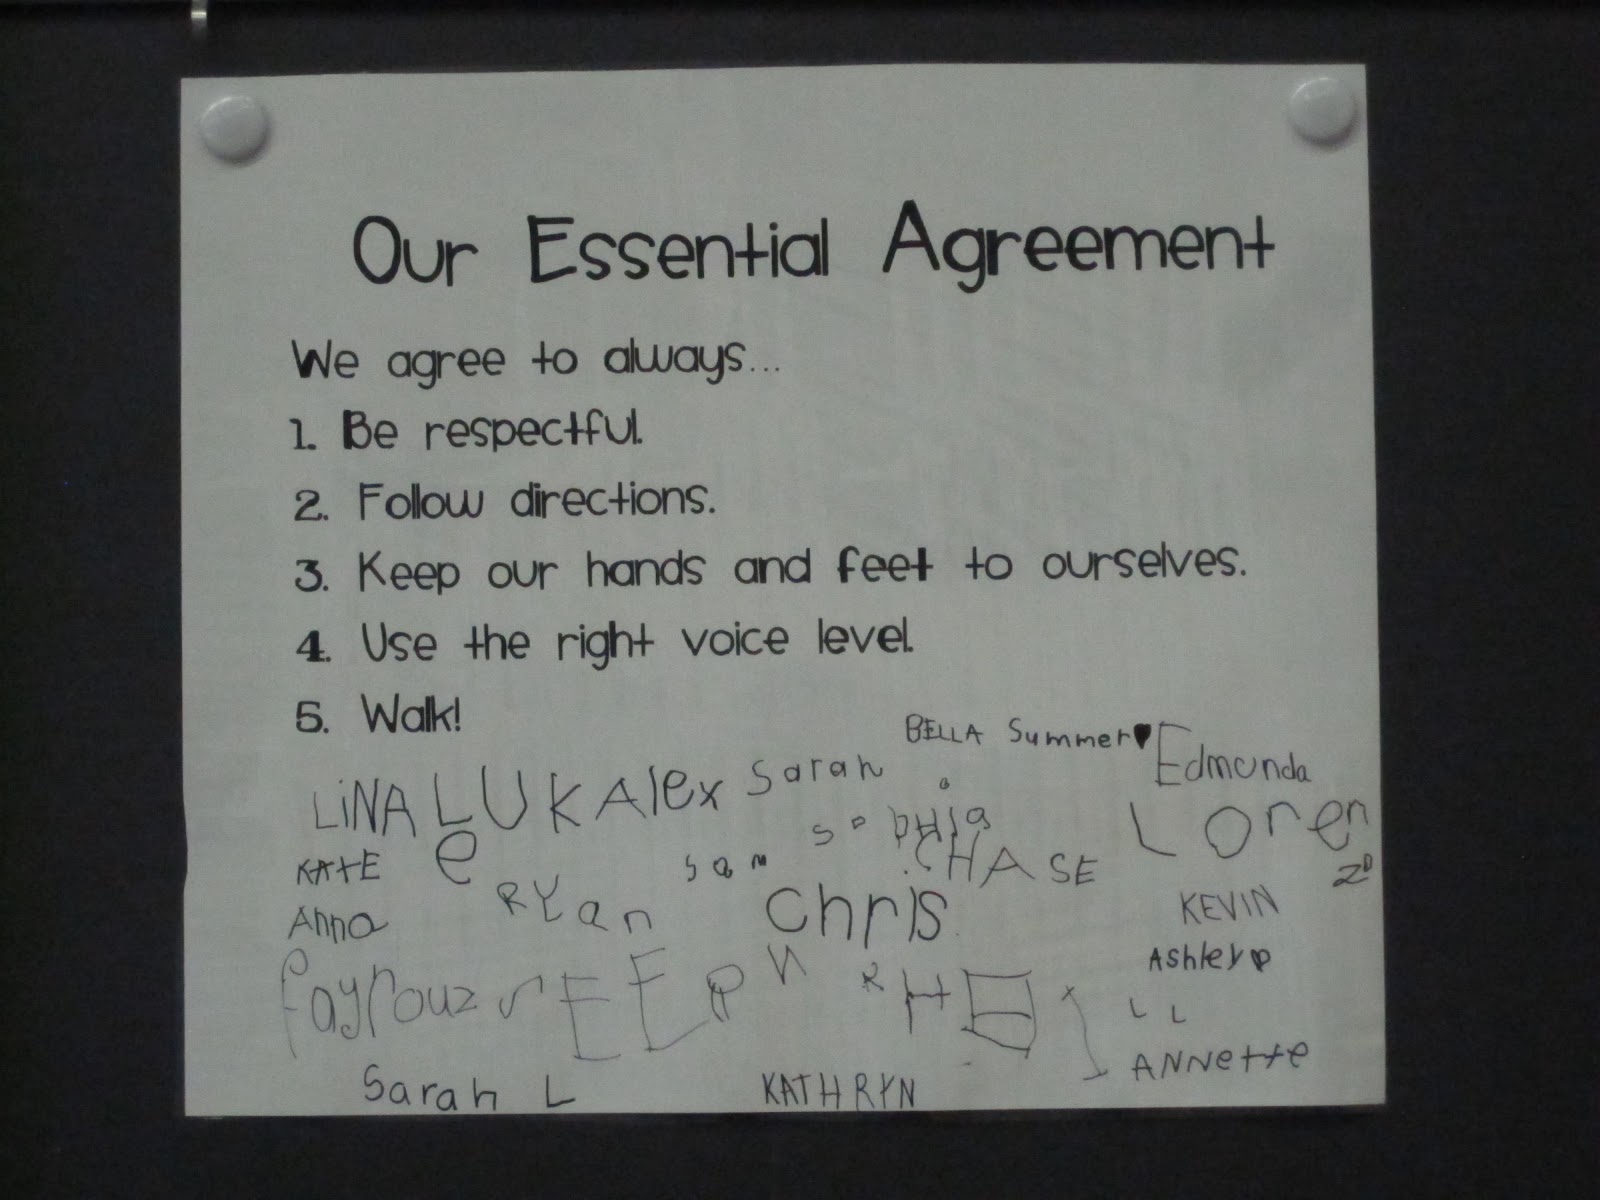 Our Essential Agreement
We agree to always...
1. Be respectful.
2. Follow directions.
3. Keep our hands and feet to ourselves.
4. Use the right voice level.
5. Walk!
BELLA Summer♥
LiNA LUKAlex Sarah Edmunda
e
SOPHia Loren
KATE Sam CHASE zo
Anna RYan Chris KEVIN
Ashley
fayrouz
L L
ANNette
Sarah L KATHRYN